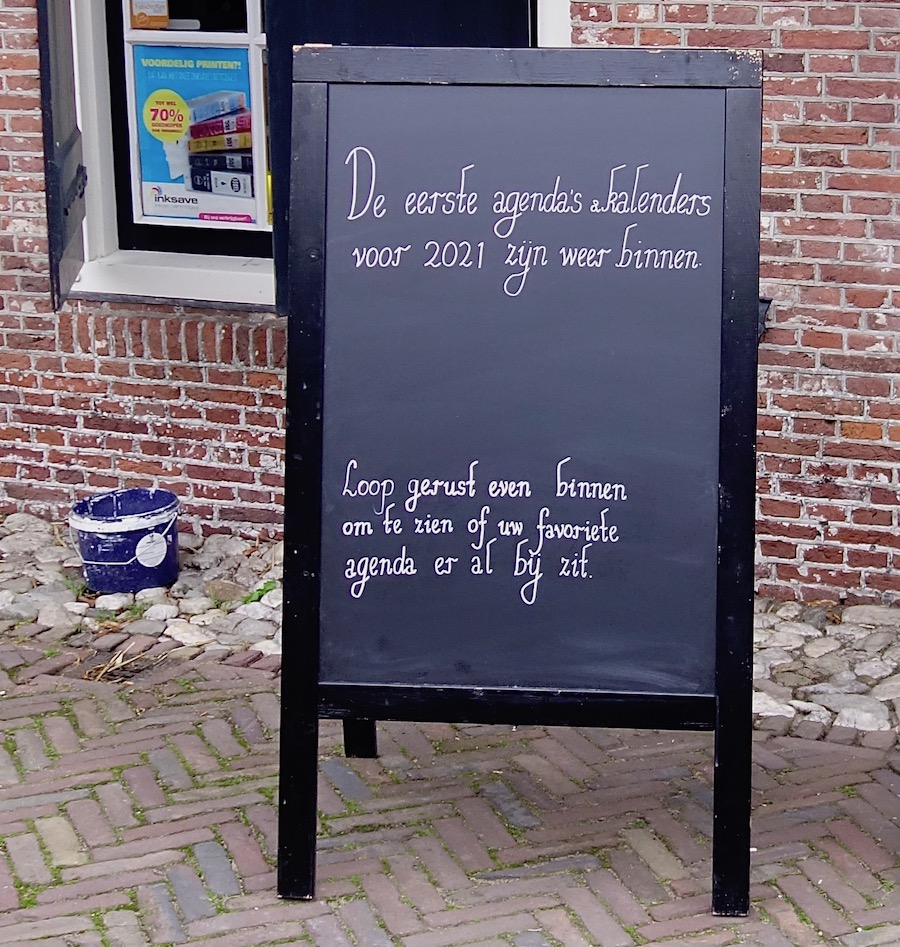 VOORDELIG PRINTEN?!
TOT WEL
70%
GOEDKOPER
inksave
De eerste agenda's & kalenders
voor 2021 zijn weer binnen.
Loop gerust even binnen
om te zien of uw favoriete
agenda er al bij zit.